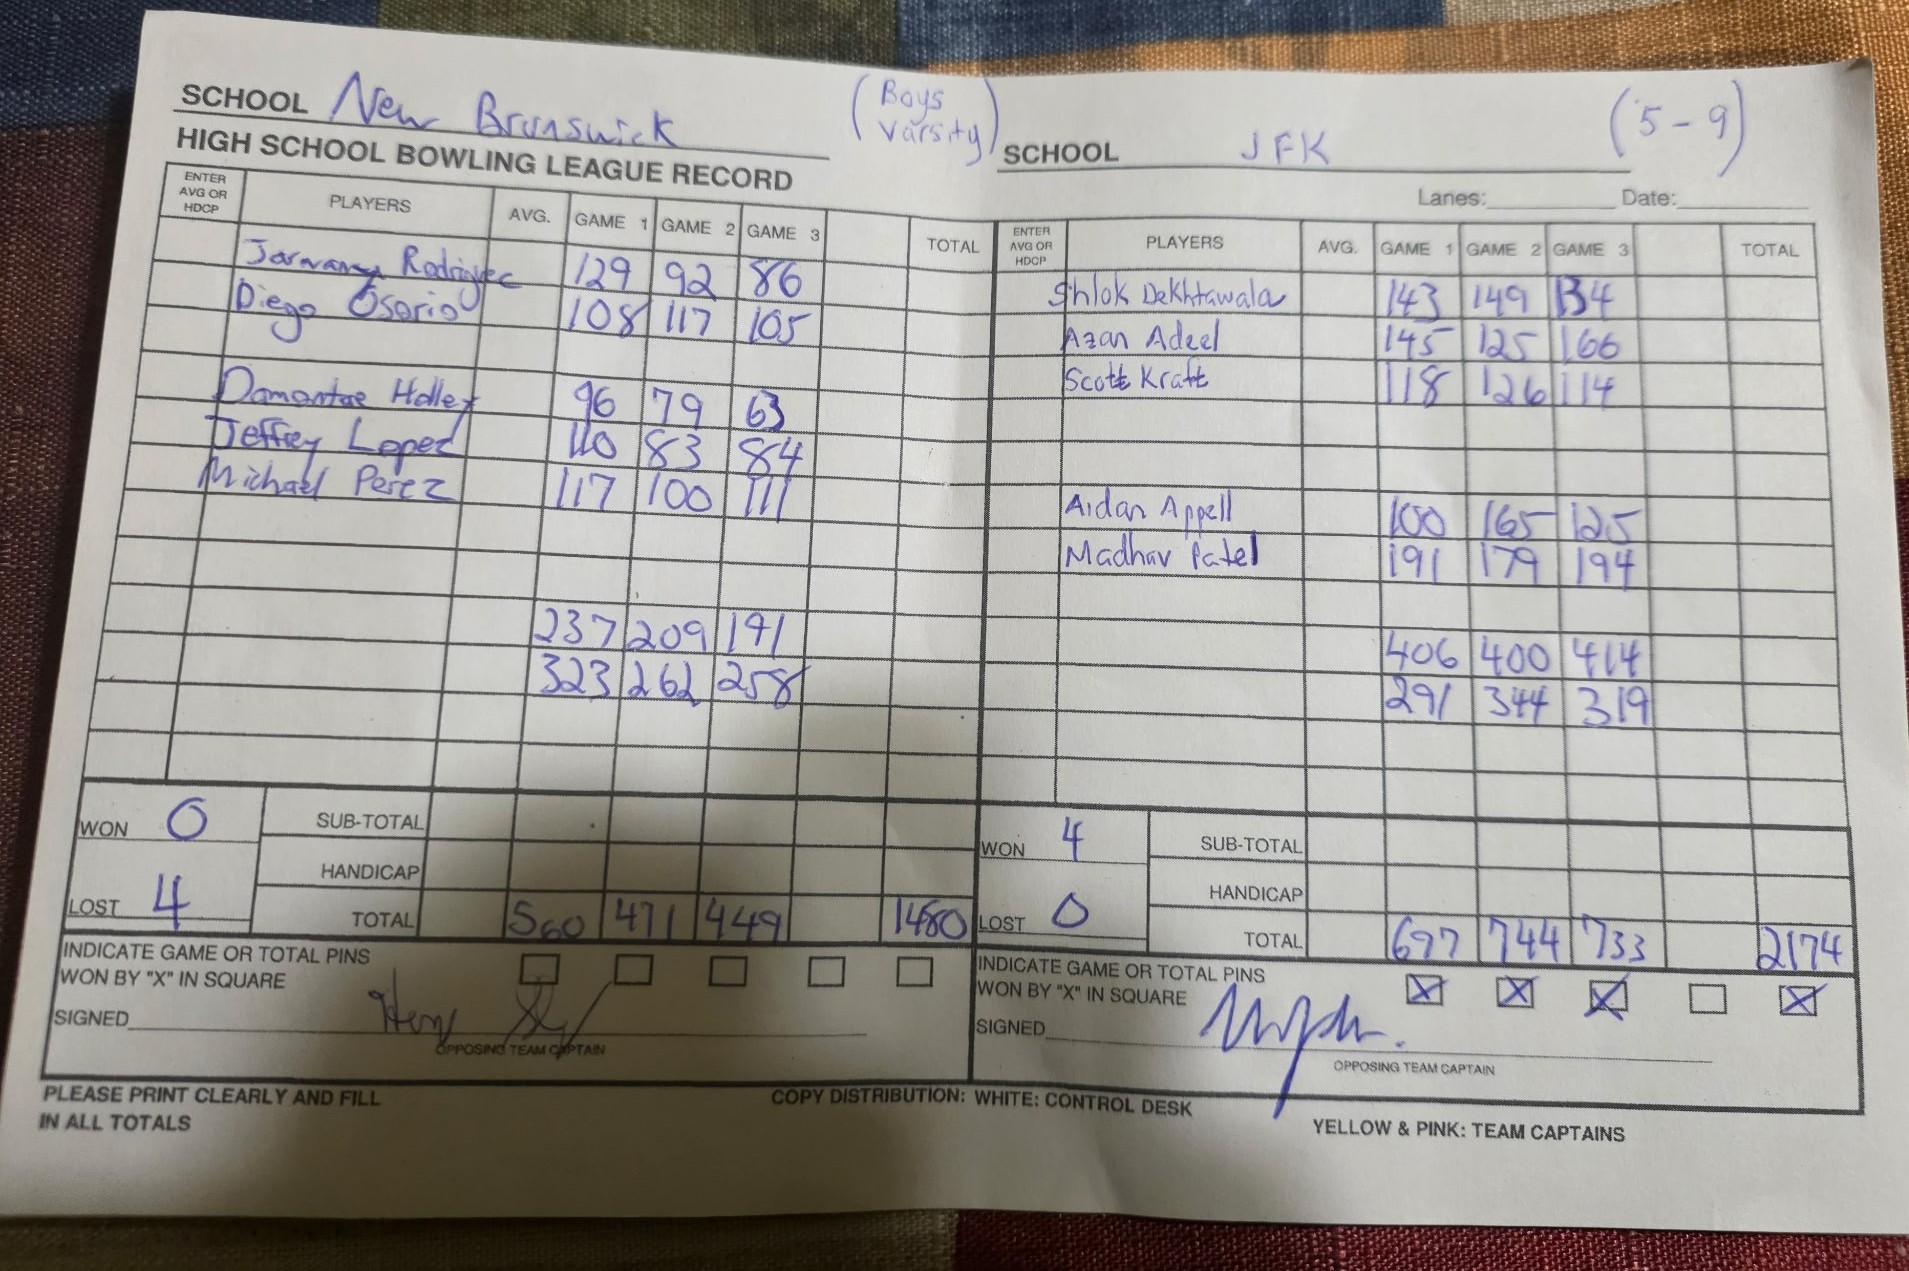 SCHOOL New Brunswick (Boys Varsity) SCHOOL JFK (5-9)
HIGH SCHOOL BOWLING LEAGUE RECORD
Lanes: Date:
ENTER AVG OR HDCP PLAYERS AVG. GAME 1 GAME 2 GAME 3 TOTAL
Rodriguez 129 92 86
Diego Osorio 108 117 105
Damontae Holley 96 79 63
Jeffrey Lopez 110 83 84
Michael Perez 117 100 111
237 209 191
323 262 258
WON 0 SUB-TOTAL
HANDICAP
LOST 4 TOTAL 560 471 449 1480
INDICATE GAME OR TOTAL PINS
WON BY "X" IN SQUARE
SIGNED
OPPOSING TEAM CAPTAIN
ENTER AVG OR HDCP PLAYERS AVG. GAME 1 GAME 2 GAME 3 TOTAL
Shlok Dekhtawala 143 149 134
Azan Adeel 145 125 166
Scott Kraft 118 126 114
Aidan Appell 100 165 125
Madhav Patel 191 179 194
406 400 414
291 344 319
WON 4 SUB-TOTAL
HANDICAP
LOST 0 TOTAL 697 744 733 2174
INDICATE GAME OR TOTAL PINS
WON BY "X" IN SQUARE X X X X
SIGNED
OPPOSING TEAM CAPTAIN
PLEASE PRINT CLEARLY AND FILL
IN ALL TOTALS
COPY DISTRIBUTION: WHITE: CONTROL DESK
YELLOW & PINK: TEAM CAPTAINS